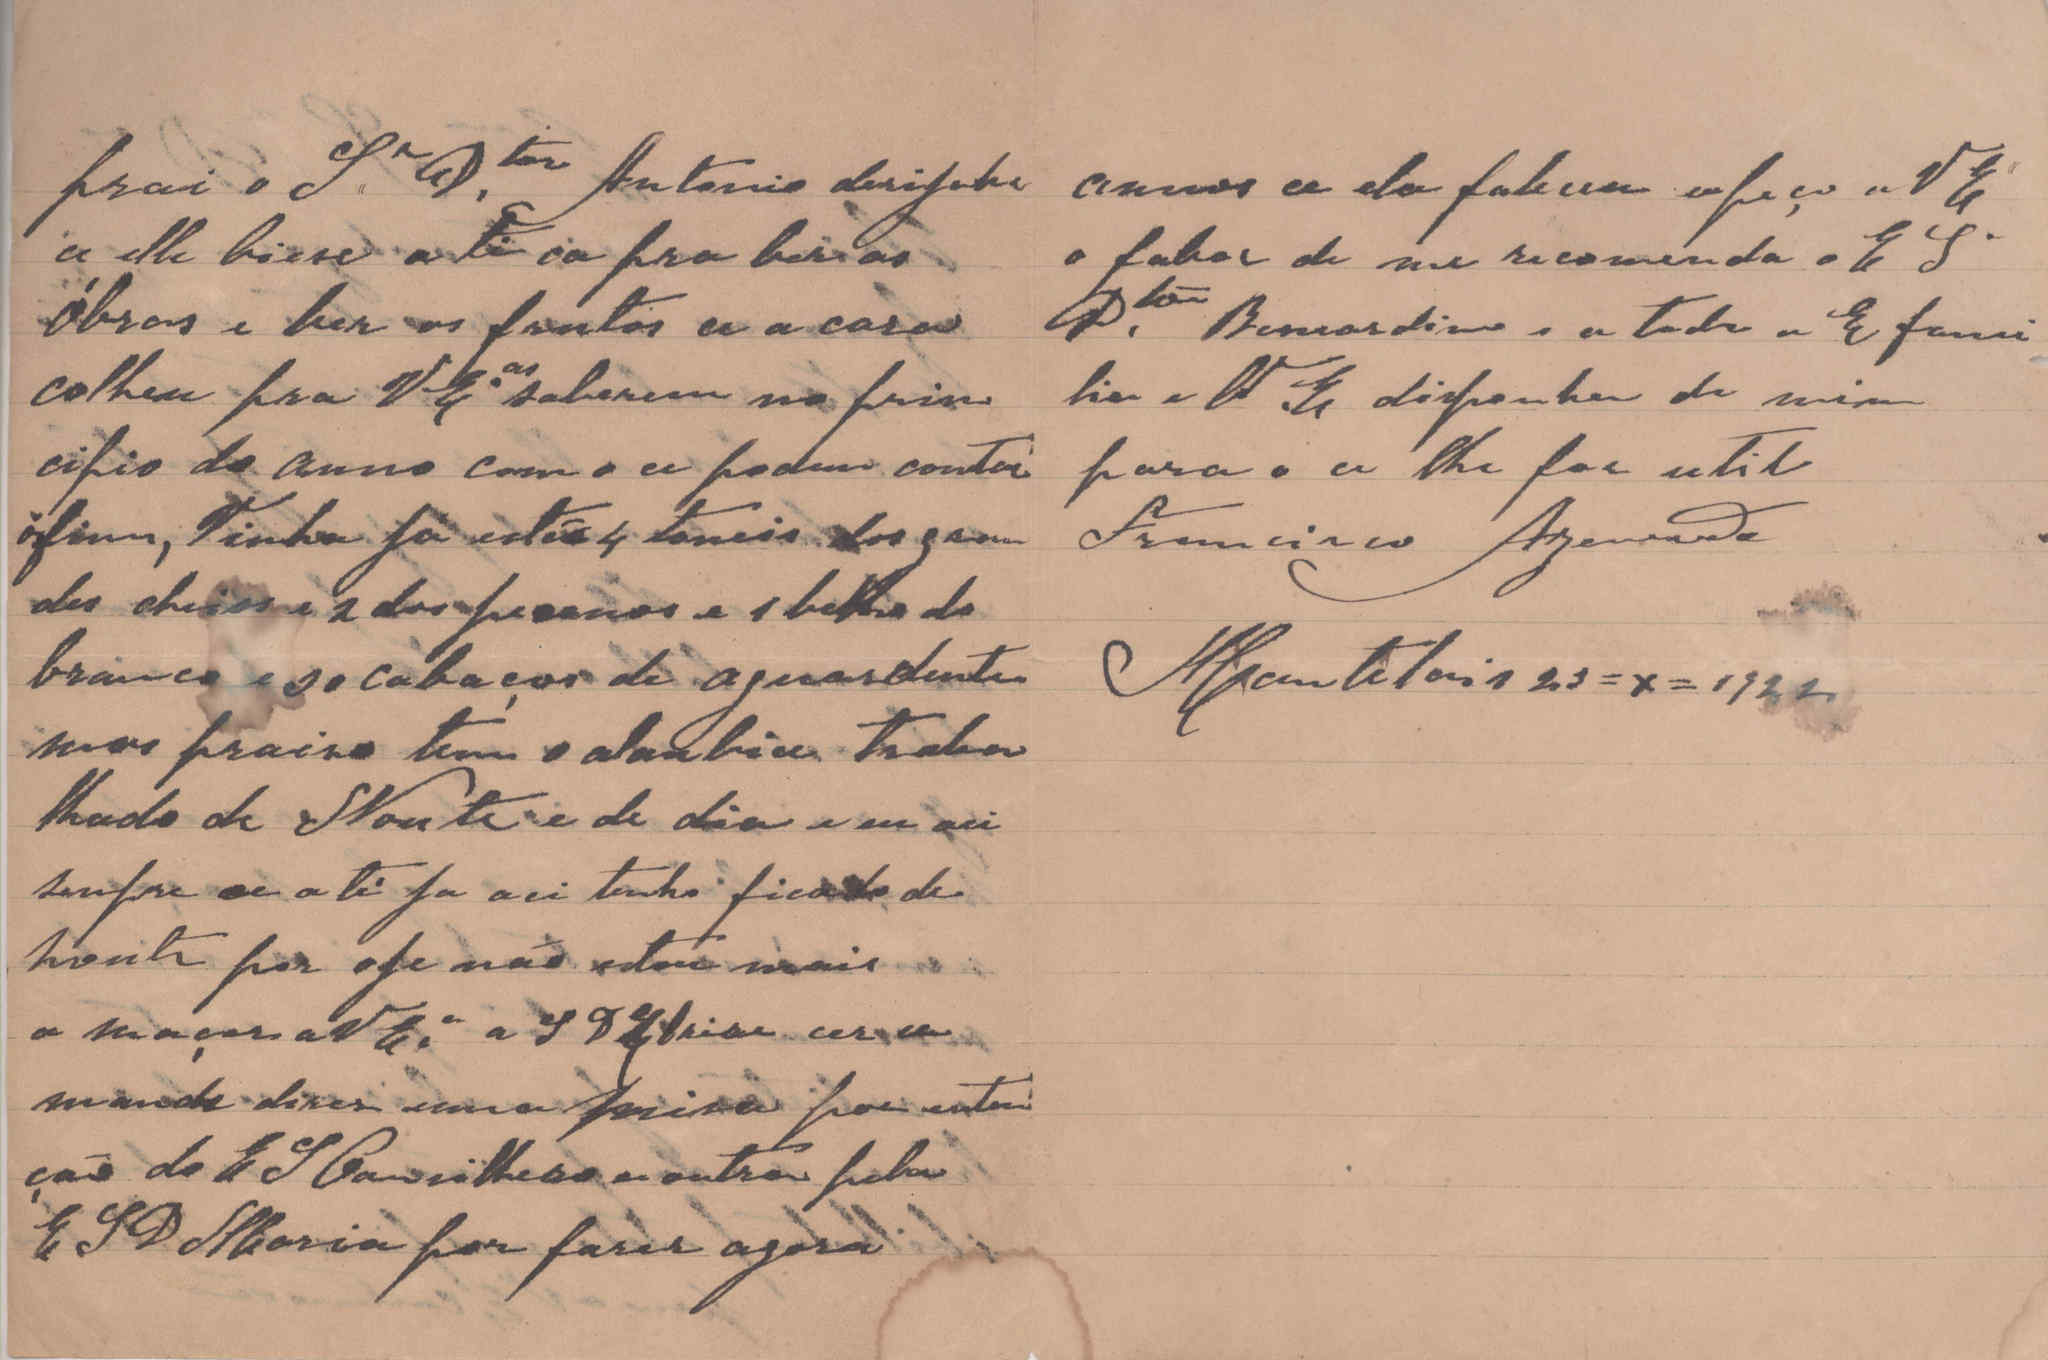 prai o Sr. D.tor Antonio dirijabe
a elle biese até ca pra ber as
óbras e ber os frutos ce a casa
colheu pra V E.as saberem no prin
cipio do anno com o ce podem contar
ófim, Vinho ja estão 4 toneis dos gran
des cheios e 2 dos pecenos e 1 belho do
branco e 30 cabaços de aguardente
mas praiso tem o alanbice traba
lhado de Noute e de dia e eu aci
sempre ce até ja aci tenho ficado de
noute por oje não estou mais
a maçar a V E.a a S D ser ce
mande dizer uma misa por enten
ção do E S Consilhero e outra pela
E S D Maria por fazer agora
annos ce ela faleceu e peço a V E
o fabor de me recomenda o E S
D.tor Bernardino e a toda a E fami
lia e V. E disponha de mim
para o ce lhe for util
Francisco Azevedo
23=X=1922